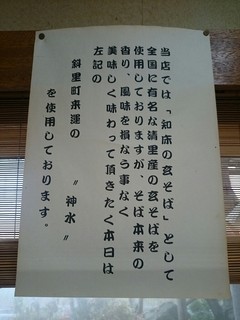 当店では「知床の玄そば」として
全国に有名な清里産の玄そばを
使用しておりますが、そば本来の
香り、風味を損なう事なく
美味しく味わって頂きたく本日は
左記の
斜里町来運の 〃神水〃
を使用しております。